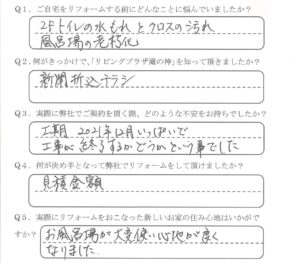 Q1. ご自宅をリフォームする前にどんなことに悩んでいましたか?
2Fトイレの水もれとクロスの汚れ
風呂場の老朽化
Q2. 何がきっかけで、「リビングプラザ滝の神」を知って頂きましたか?
新聞折込チラシ
Q3. 実際に弊社でご契約を頂く際、どのような不安をお持ちでしたか?
工期 2021年12月いっぱいで
工事が終るかどうかという事でした
Q4. 何が決め手となって弊社でリフォームをして頂けましたか?
見積金額
Q5. 実際にリフォームをおこなった新しいお家の住み心地はいかがで
すか?
お風呂場が大変使い心地が良く
なりました.